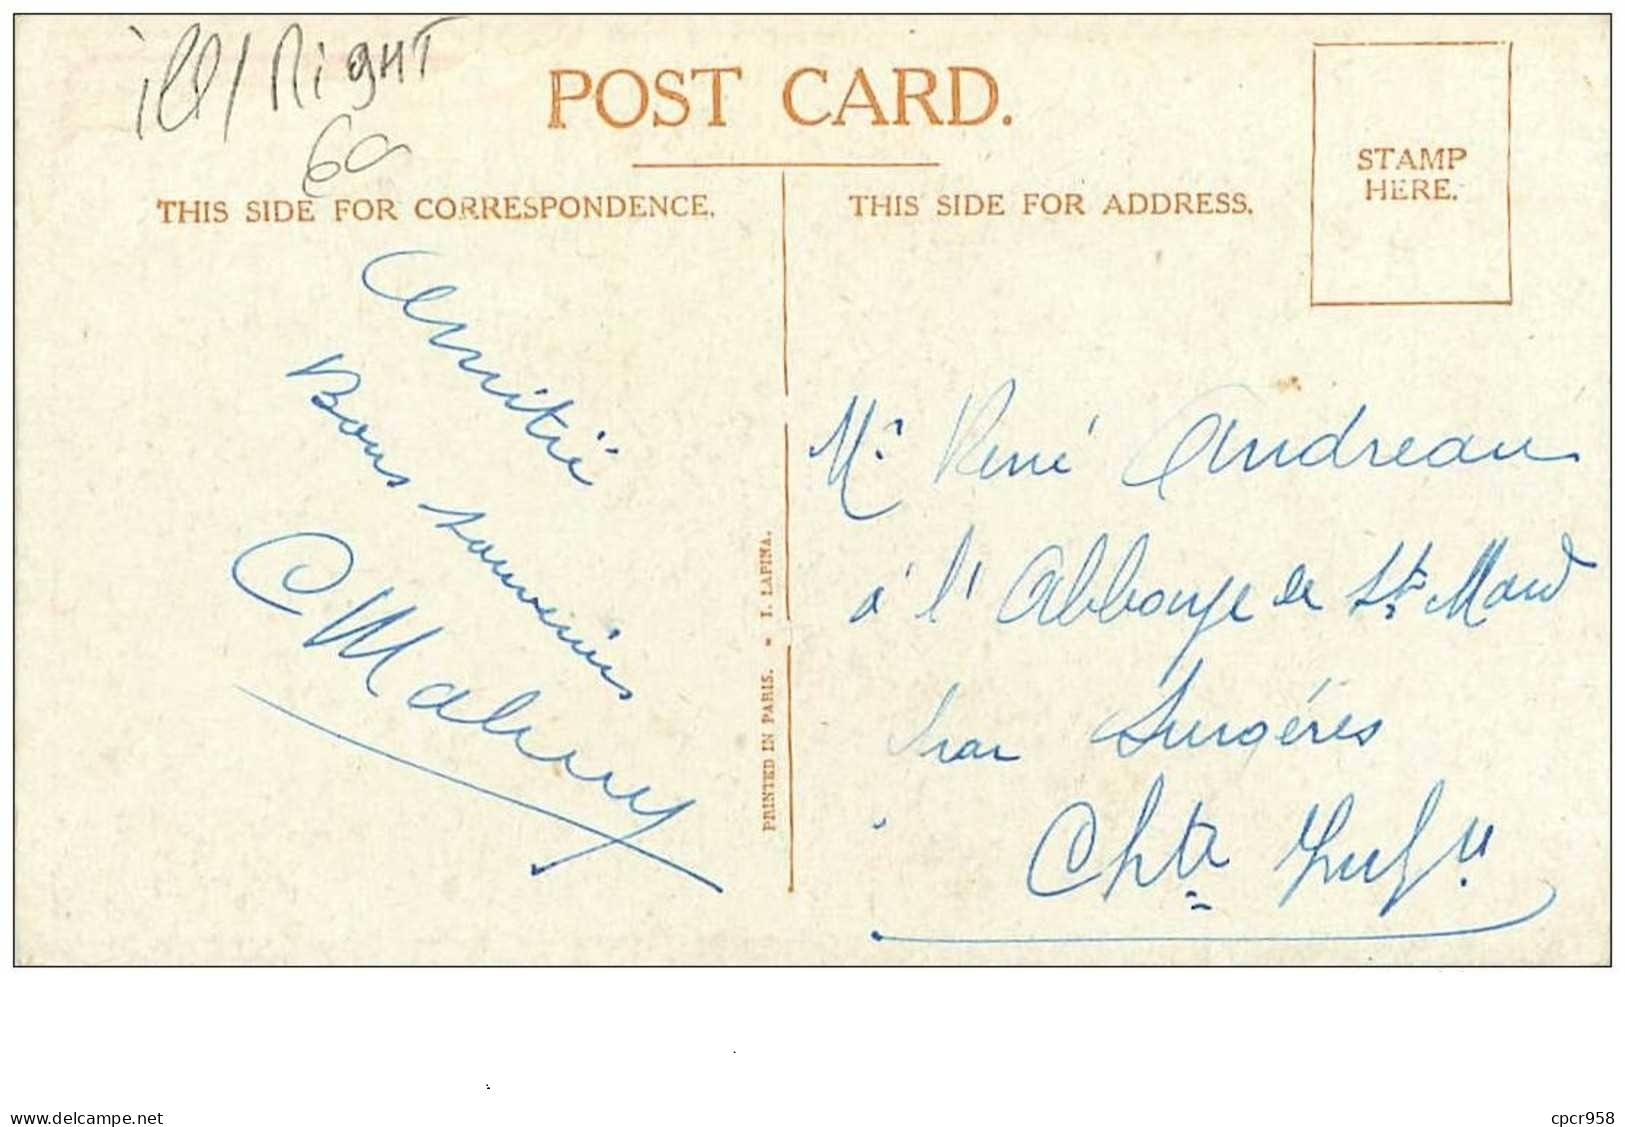 ill/ Right
60
POST CARD.
THIS SIDE FOR CORRESPONDENCE.
THIS SIDE FOR ADDRESS.
STAMP
HERE.
Amitié
Bons souvenirs
PRINTED IN PARIS. - I. LAPINA.
Mr René Andreau
à l'Abbaye de St Maud
par Surgéres
Chte Infre
www.delcampe.net
cpcr958